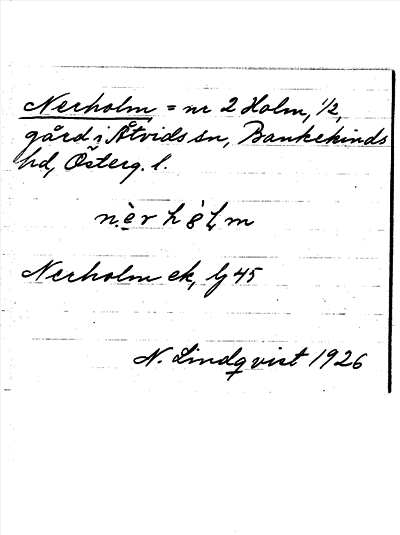 Nerholm = nr 2 Holm, 1/2,
gård i Åtvids sn, Bankekinds
hd, Österg. l.
Nerholm ek, bj 45
N. Lindqvist 1926